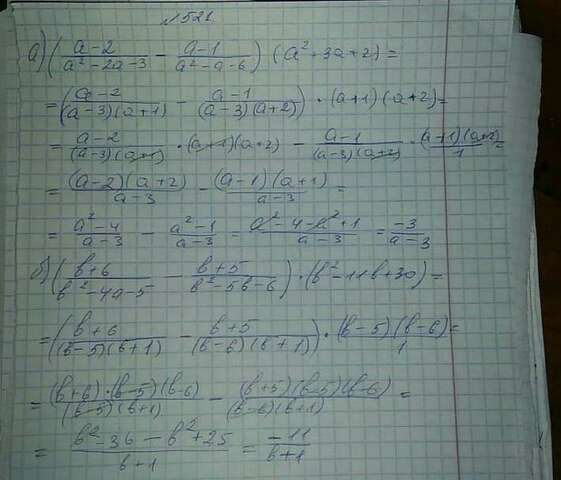 №521.
а) (a-2/a²-2a-3 - a-1/a²-a-6) (a²+3a+2) =
= (a-2/(a-3)(a+1) - a-1/(a-3)(a+2)) · (a+1)(a+2) =
= a-2/(a-3)(a+1) · (a+1)(a+2) - a-1/(a-3)(a+2) · (a+1)(a+2)/1 =
= (a-2)(a+2)/a-3 - (a-1)(a+1)/a-3 =
= a²-4/a-3 - a²-1/a-3 = a²-4-a²+1/a-3 = -3/a-3
б) (b+6/b²-4a-5 - b+5/b²-5b-6) · (b²-11b+30) =
= (b+6/(b-5)(b+1) - b+5/(b-6)(b+1)) · (b-5)(b-6)/1 =
= (b+6)·(b-5)(b-6)/(b-5)(b+1) - (b+5)(b-5)(b-6)/(b-6)(b+1) =
= b²-36-b²+25/b+1 = -11/b+1